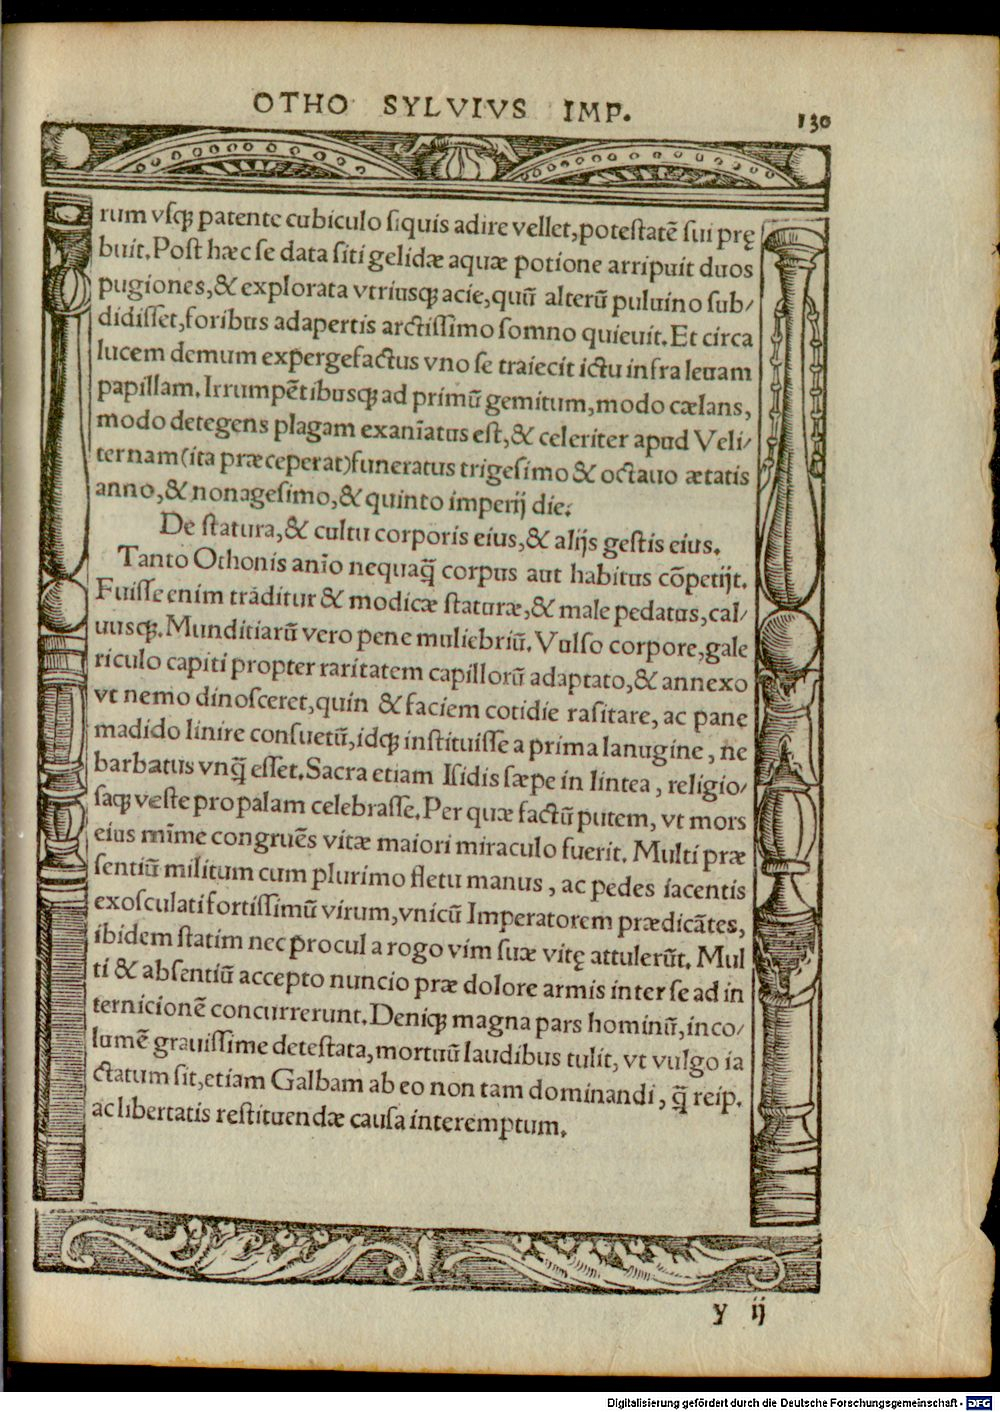 OTHO SYLVIVS IMP.
130
rum vſqꝫ patente cubiculo ſiquis adire vellet, poteſtatẽ ſui prę
buit. Poſt hæc ſe data ſiti gelidæ aquæ potione arripuit duos
pugiones, & explorata vtriusqꝫ acie, quũ alterũ puluino ſub/
didiſſet, foribus adapertis arctiſſimo ſomno quieuit. Et circa
lucem demum expergefactus vno ſe traiecit ictu infra leuam
papillam. Irrumpẽtibusqꝫ ad primũ gemitum, modo cælans,
modo detegens plagam exanĩatus eſt, & celeriter apud Veli/
ternam (ita præceperat) funeratus trigeſimo & octauo ætatis
anno, & nonageſimo, & quinto imperij die.
De ſtatura, & cultu corporis eius, & alijs geſtis eius.
Tanto Othonis anĩo nequaq̃ corpus aut habitus cõpetijt.
Fuiſſe enim trãditur & modicæ ſtaturæ, & male pedatus, cal/
uusqꝫ. Munditiarũ vero pene muliebriũ. Vulſo corpore, gale
riculo capiti propter raritatem capillorũ adaptato, & annexo
vt nemo dinoſceret, quin & faciem cotidie raſitare, ac pane
madido linire conſuetũ, idqꝫ inſtituiſſe a prima lanugine, ne
barbatus vnq̃ eſſet. Sacra etiam Iſidis ſæpe in lintea, religio/
ſaqꝫ veſte propalam celebraſſe. Per quæ factũ putem, vt mors
eius mĩme congruẽs vitæ maiori miraculo fuerit. Multi præ
ſentiũ militum cum plurimo fletu manus, ac pedes iacentis
exoſculati fortiſſimũ virum, vnicũ Imperatorem prædicãtes,
ibidem ſtatim nec procul a rogo vim ſuæ vitę attulerũt. Mul
ti & abſentiũ accepto nuncio præ dolore armis inter ſe ad in
ternicionẽ concurrerunt. Deniqꝫ magna pars hominũ, inco/
lumẽ grauiſſime deteſtata, mortuũ laudibus tulit, vt vulgo ia
ctatum ſit, etiam Galbam ab eo non tam dominandi, q̃ reip.
ac libertatis reſtituendæ cauſa interemptum.
y ij
Digitalisierung gefördert durch die Deutsche Forschungsgemeinschaft - DFG